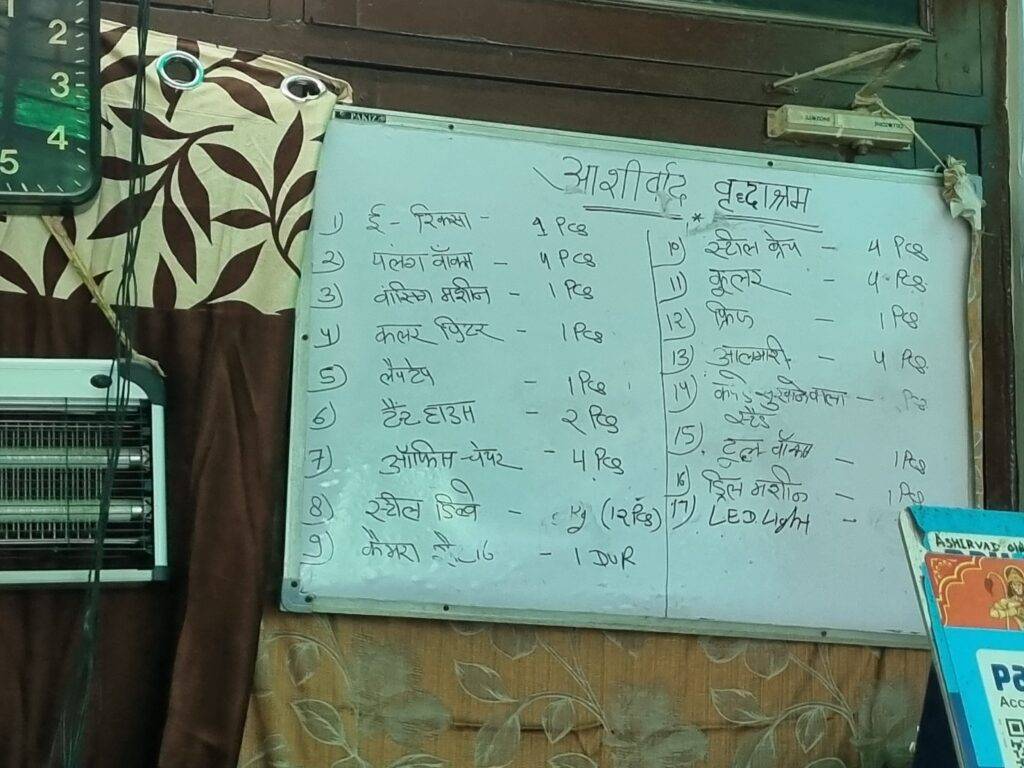 1
2
3
4
5
PAKIZ
आशीर्वाद वृद्दाश्रम
1) ई - रिक्सा - 1 Pcs
2) पलंग बॉक्स - 4 Pcs
3) वांसिग मशीन - 1 Pcs
4) कलर प्रिंटर - 1 Pcs
5) लैपटेप - 1 Pcs
6) टैंट हाउस - 2 Pcs
7) ऑफिस चेयर - 4 Pcs
8) स्टील डिब्बे - Kg (12 Pcs)
9) कैमरा - 1 DVR
10) स्टील - 4 Pcs
11) कुलर - 4 Pcs
12) फ्रिज - 1 Pcs
13) आलमारी - 4 Pcs
14) सुखानेवाला -
स्टैंड
15) टूल बॉक्स - 1 Pcs
16) ड्रिल मशीन - 1 Pcs
17) LED Light -
ASHIRVAD
Pa
Acc